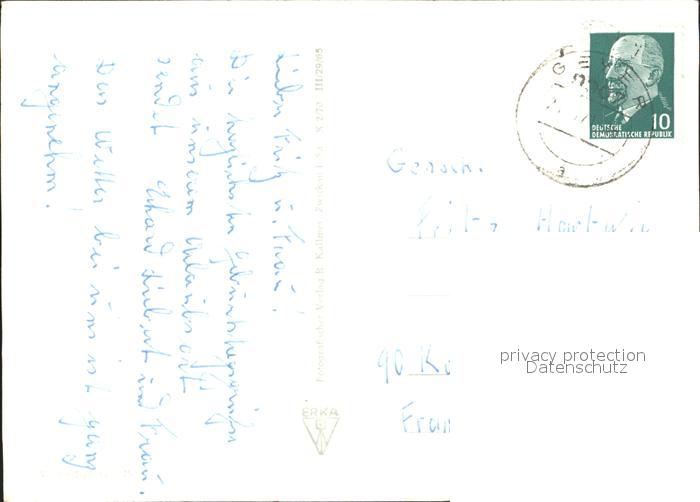 Lieber Fritz u. Frau!
Die herzlichsten Geburtstagsgrüße
aus unserem Urlaubsort
sendet Erhard und Frau.
Das Wetter bei uns ist ganz
angenehm!
Fotografischer Verlag R. Kallmer, Zwickau i. Sa. III/29/65
ERKA
DEUTSCHE
DEMOKRATISCHE REPUBLIK
10
Genossn.
Fritz Hartwig
90 K
Fran
privacy protection
Datenschutz